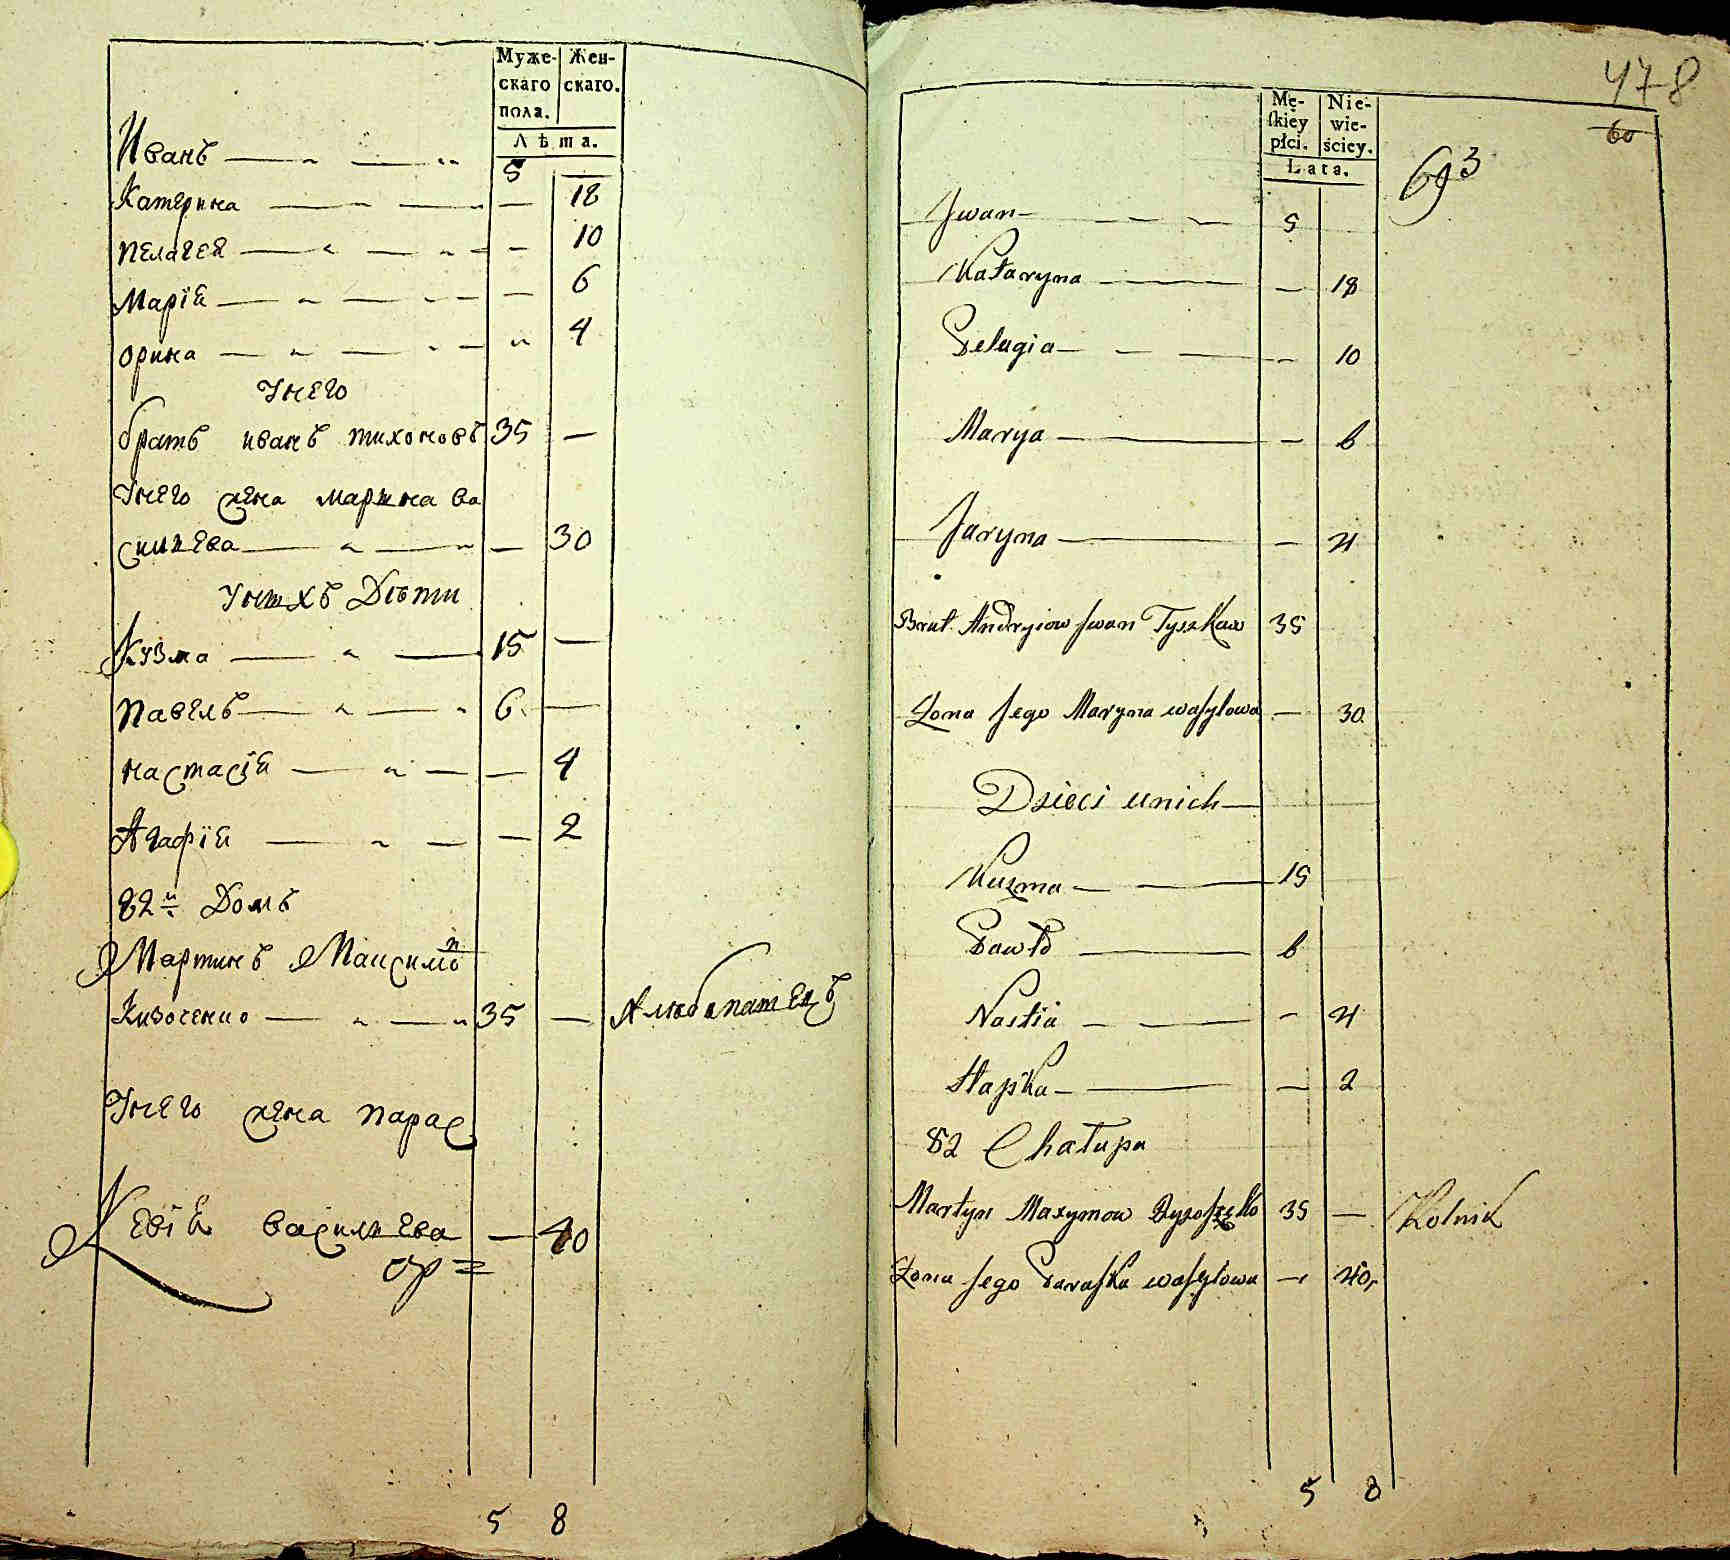 Муже-
скаго
пола.
Жен-
скаго.
Лѣта.
Иванъ 5
Катерина 18
пелагея 10
Марія 6
орина 4
Унего
братъ иванъ тихоновъ 35
Унего жена марина ва
силиева 30
Унихъ Дѣти
Кузма 15
павелъ 6
настасія 4
Агафія 2
82й Домъ
Мартинъ Максимо
35
Унего жена парас
кевія василиева 40
5 8
478
60
693
Mę-
ſkiey
płci.
Nie-
wie-
ściey.
Lata.
Jwan 5
Kataryna 18
Pelagia 10
Marya 6
Jaryna 4
Brat Andryiow Jwan Tyszkow 35
Żona Jego Maryna waſylowa 30
Dzieci unich
Kuzma 15
Pawło 6
Nastia 4
Hapka 2
82 Chałupa
Martyn Maxymow 35 Rolnik
Żona Jego Paraſka waſylowa 40,
5 8